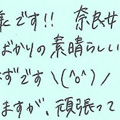 です!! 奈良女
ばかりの素晴らしい
ずです\(^o^)/
ますが、頑張って